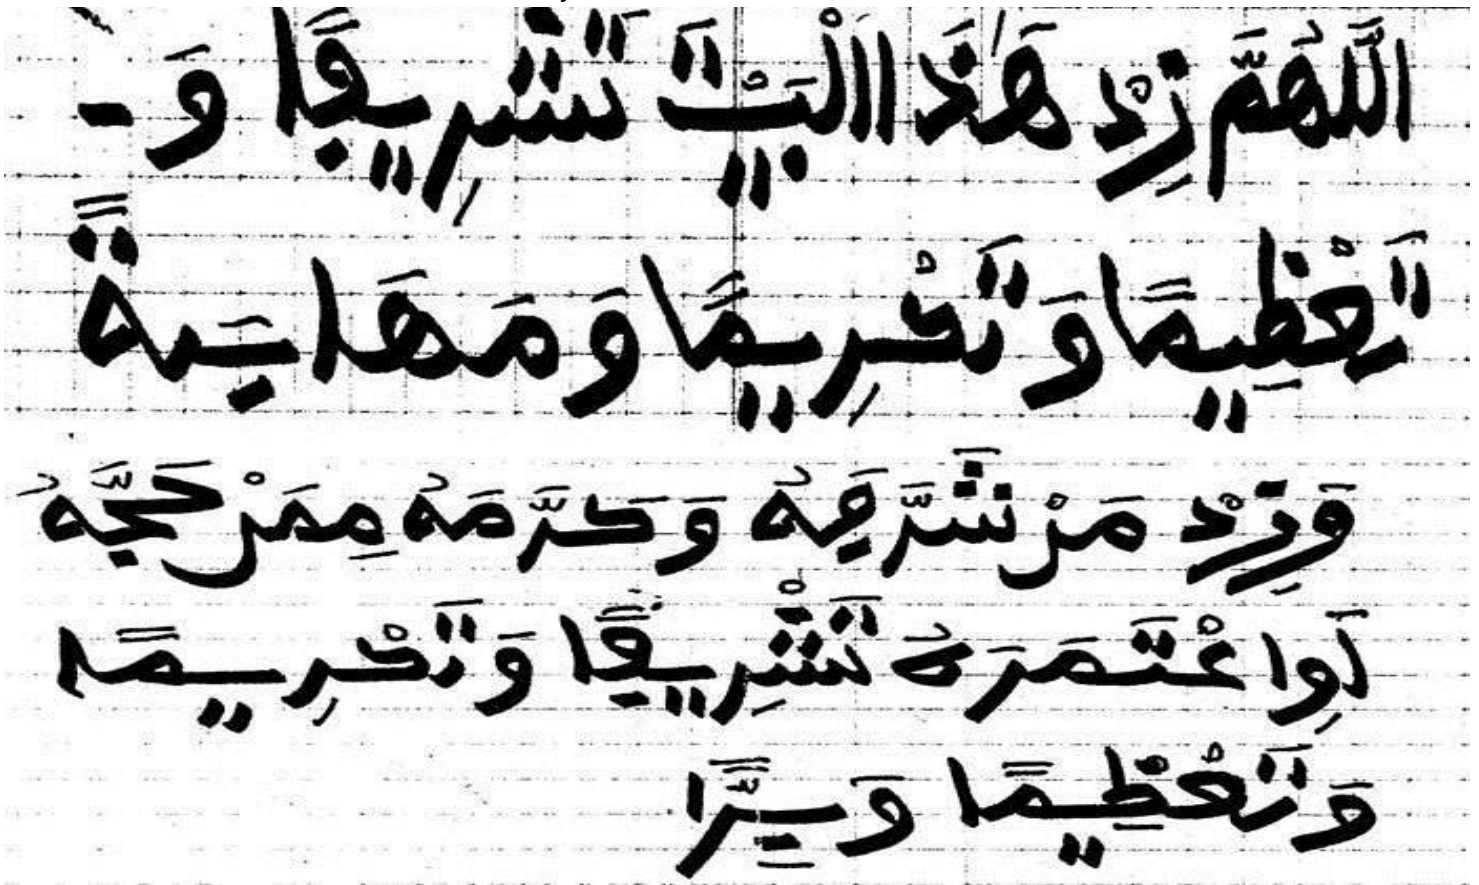 اللَّهُمَّ زِدْ هَٰذَا الْبَيْتَ تَشْرِيفًا وَ-
تَعْظِيمًا وَتَكْرِيمًا وَمَهَابَةً
وَزِدْ مَنْ شَرَّفَهُ وَكَرَّمَهُ مِمَنْ حَجَّهُ
أَوِاعْتَمَرَهُ تَشْرِيفًا وَتَكْرِيمًا
وَتَعْظِيمًا وَبِرًّا